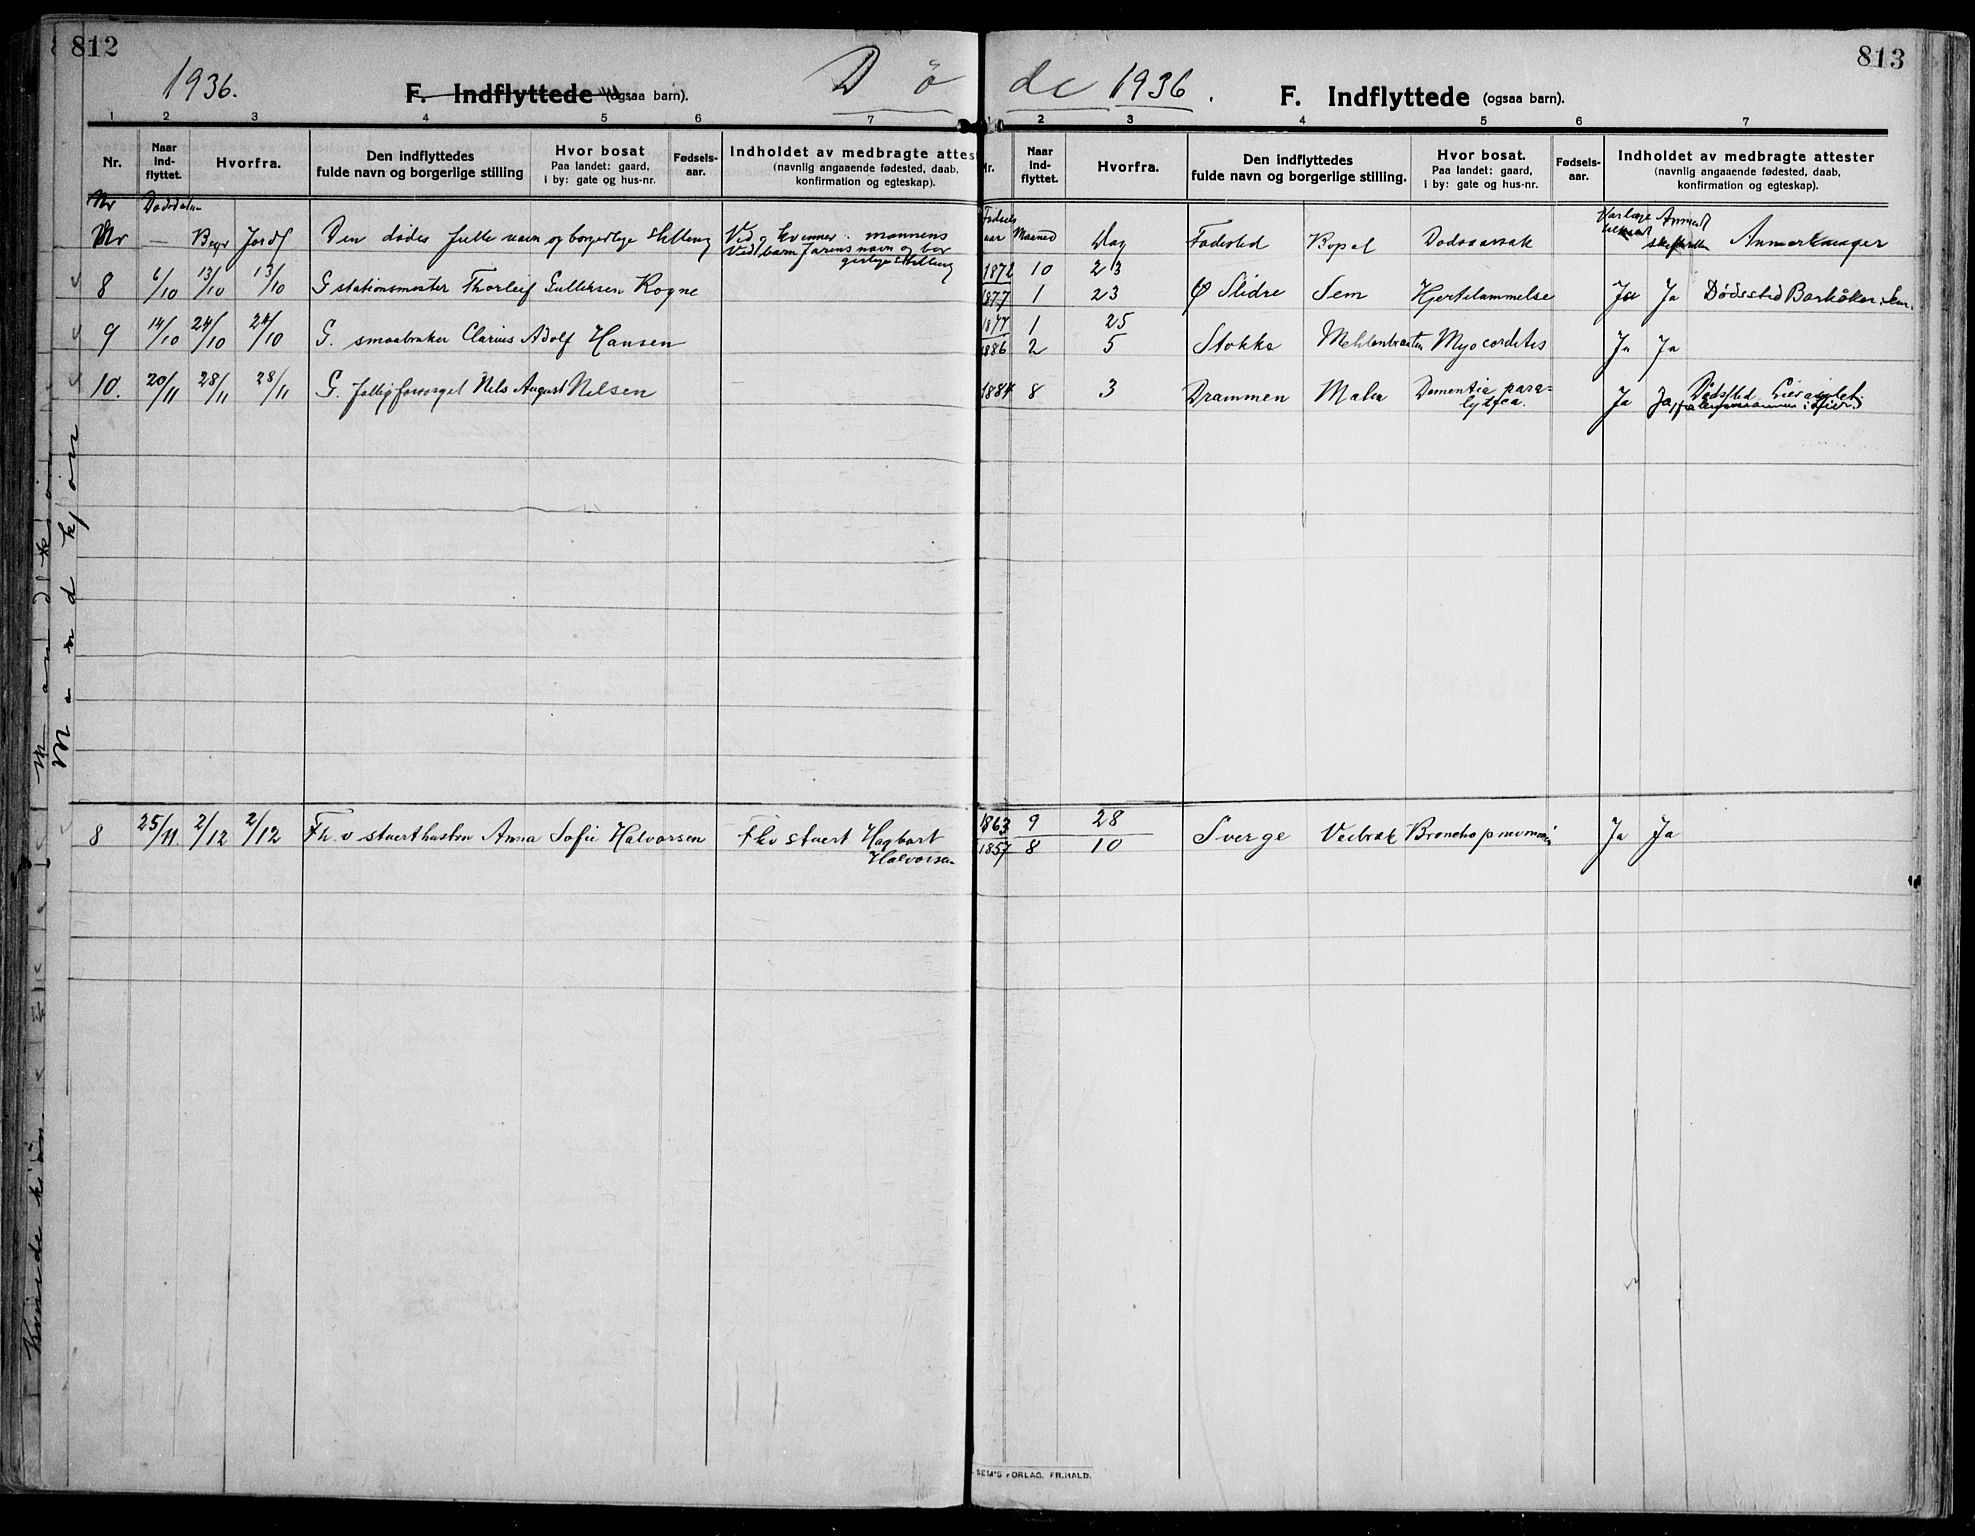 812
1936.
F. Indflyttede (ogsaa barn).
D ö
1 2 3 4 5 6 7
Nr. Naar ind- flyttet. Hvorfra. Den indflyttedes fulde navn og borgerlige stilling Hvor bosat Paa landet: gaard, i by: gate og hus-nr. Fødsels- aar. Indholdet av medbragte attest (navnlig angaaende fødested, daab, konfirmation og egteskap).
Nr
Nr — Begr Jordf Den dødes fulle navn og borgerlige stilling Ved kvinner: mannens
Ved barn farens navn og bor
gerlige stilling
8 6/10 13/10 13/10 G stationsmester Thorleif Gulliksen Rogne
9 14/10 24/10 24/10 G. smaabruker Clarius Adolf Hansen
10. 20/11 28/11 28/11 G. Nils August Nilsen
Mandkjön
8 25/11. 2/12 2/12 Fh. v stuerthustru Anna Sofie Halvorsen Fhv stuert Hagbart
Halvorsen
Kvindekjön
813
de 1936.
F. Indflyttede (ogsaa barn).
1 2 3 4 5 6 7
Nr. Naar ind- flyttet. Hvorfra. Den indflyttedes fulde navn og borgerlige stilling. Hvor bosat. Paa landet: gaard, i by: gate og hus-nr. Fødsels- aar. Indholdet av medbragte attester (navnlig angaaende fødested, daab, konfirmation og egteskap).
Fødsels
aar Maaned Dag Fødested Bopel Dødsaarsak Anmerkninger
1872 10 23
1877 1 23 Ø Slidre Sem Hjertelammelse Ja Ja Dødssted Barkåker i Sem.
1877 1 25
1886 2 5 Stokke Myocarditis Ja Ja
1884 8 3 Drammen Dementia para-
lytica. Ja Ja, Dødssted Lier asylet
i Lier
1863 9 28
1857 8 10 Sverge Bronchopneumoni Ja Ja
SEM'S FORLAG. FR.HALD.